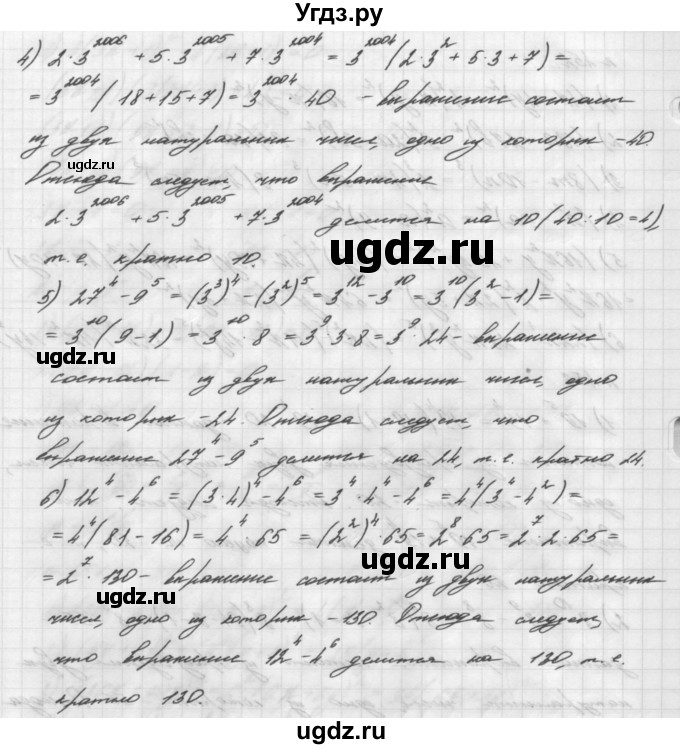 Угдз.ру
4) 2·3^2006 + 5·3^2005 + 7·3^2004 = 3^2004 (2·3^2 + 5·3 + 7) =
= 3^2004 (18+15+7) = 3^2004 · 40 - выражение состоит
из двух натуральных чисел, одно из которых - 40.
ugdz.ru
Отсюда следует, что выражение
2·3^2006 + 5·3^2005 + 7·3^2004 делится на 10 (40:10=4),
ugdz.ru
ugdz.ru
т.е. кратно 10.
5) 27^4 - 9^5 = (3^3)^4 - (3^2)^5 = 3^12 - 3^10 = 3^10 (3^2 - 1) =
= 3^10 (9-1) = 3^10 · 8 = 3^9 · 3 · 8 = 3^9 · 24 - выражение
ugdz.ru
ugdz.ru
состоит из двух натуральных чисел, одно
из которых - 24. Отсюда следует, что
выражение 27^4 - 9^5 делится на 24, т.е. кратно 24.
6) 12^4 - 4^6 = (3·4)^4 - 4^6 = 3^4 · 4^4 - 4^6 = 4^4 (3^4 - 4^2) =
= 4^4 (81-16) = 4^4 · 65 = (2^2)^4 · 65 = 2^8 · 65 = 2^7 · 2 · 65 =
ugdz.ru
= 2^7 · 130 - выражение состоит из двух натуральных
ugdz.ru
чисел, одно из которых - 130. Отсюда следует,
ugdz.ru
что выражение 12^4 - 4^6 делится на 130, т.е.
кратно 130.
ugdz.ru